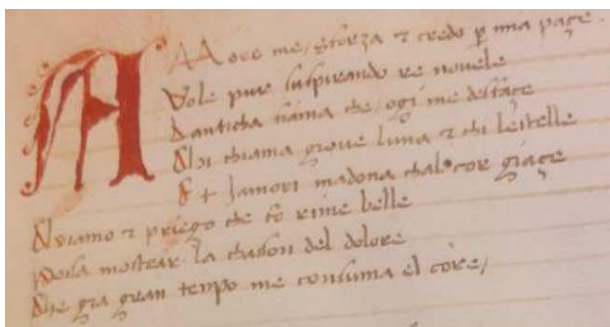 A
AMore me sforza ⁊ credo ꝑ mia paçe
Vole pur suspirando re novele
Danticha fiama che ogi me desfaçe
Chi chiama giove luna ⁊ chi le stelle
Et io amor madona chal cor giaçe
Chiamo ⁊ priego che cō rime belle
possa mostrar la chason del dolore
Che gia gran tempo me consuma el core